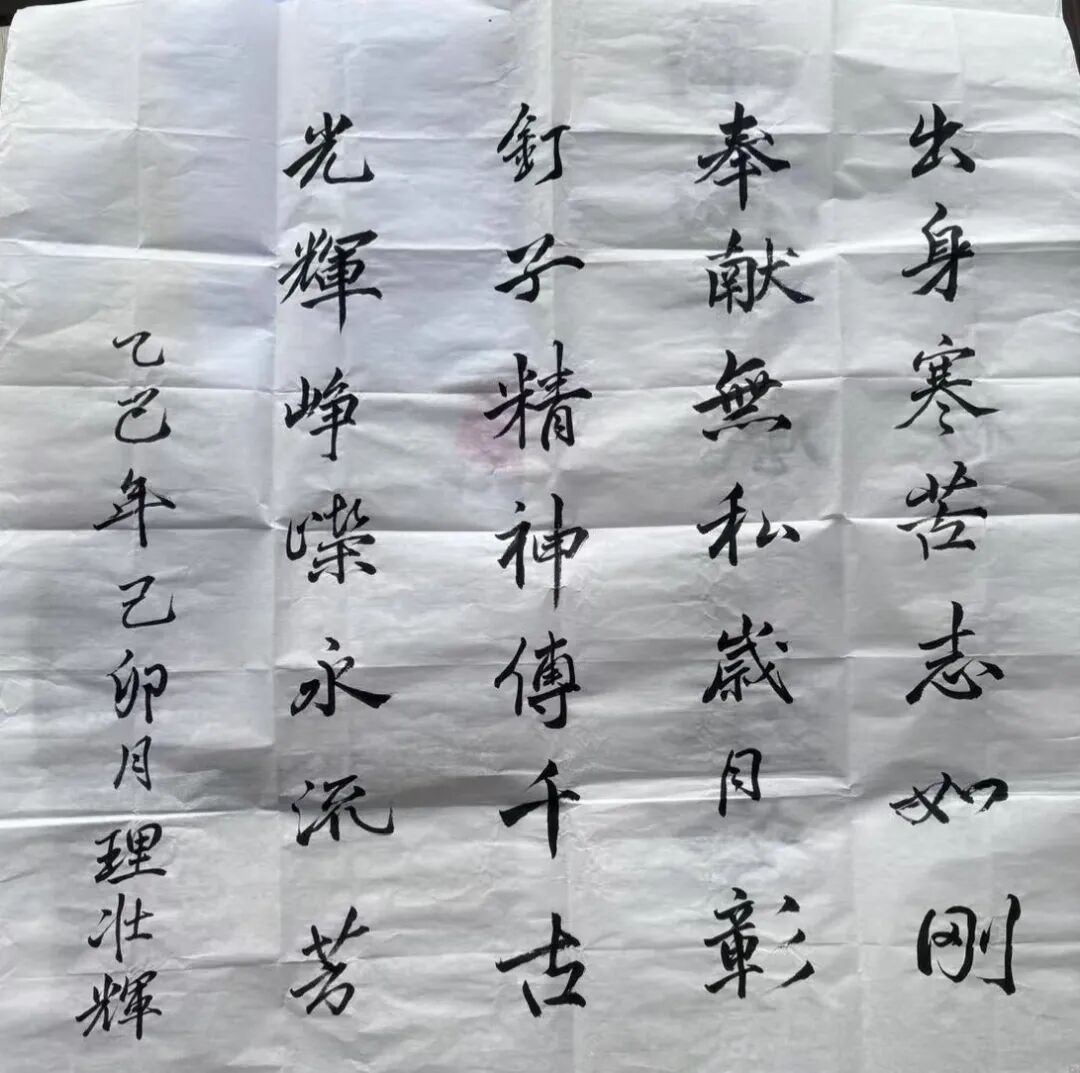 出身寒苦志如刚
奉献無私歳月彰
釘子精神傳千古
光輝崢嶸永流芳
乙巳年己卯月理壮輝